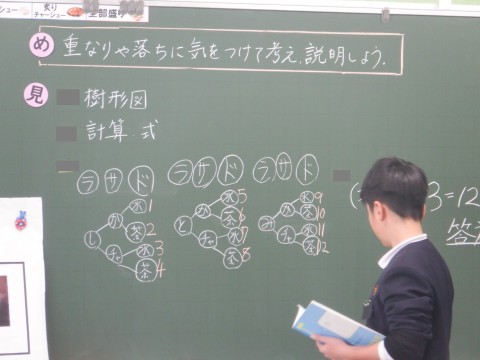 炙り
チャーシュー
全部盛り
め 重なりや落ちに気をつけて考え、説明しよう。
見 樹形図
計算 式
ラ サ ド ラ サ ド ラ サ ド
し か 水 1
茶 2
チャ 水 3
茶 4
と か 水 5
茶 6
チャ 水 7
茶 8
み か 水 9
茶 10
チャ 水 11
茶 12
3=12
答